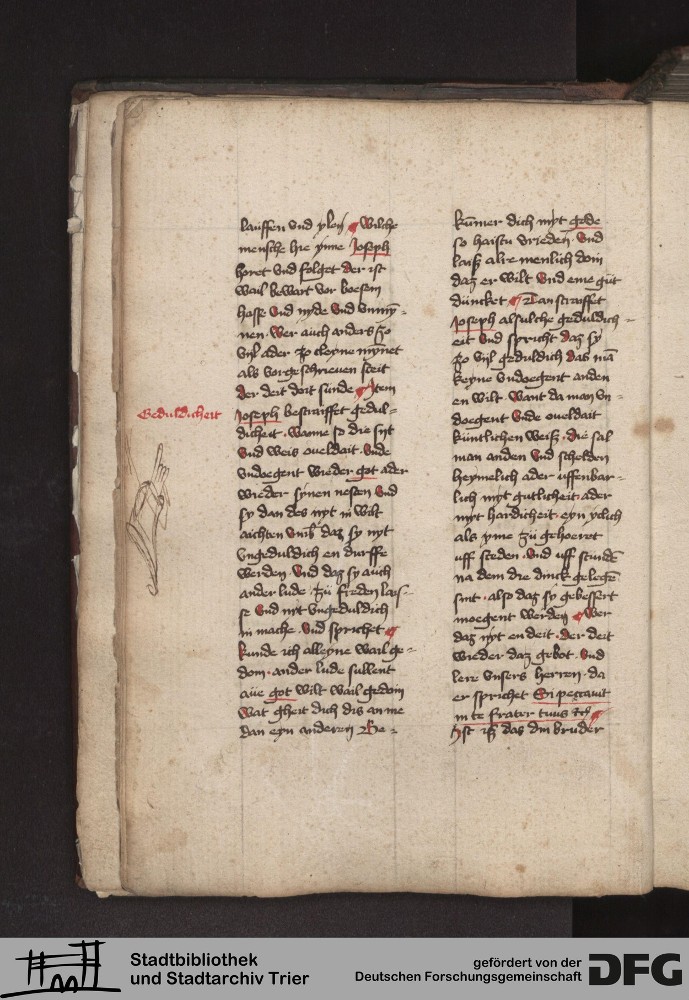 lauffen vnd ylen ¶ Wilche
mensche hie ynne Joseph
horet vnd folget der ist
wail bewart vor boesem
hasse vnd nyde vnd vnmȳ-
nen. Wer auch anders zo
vijl ader zo cleyne mȳnet
als vorgeschrieuen steit
der deit dort sunde ¶ Item
Geduldicheit
Joseph bestraiffet gedul-
dicheit. wanne so die sijt
vnd weis oueldait. vnde
vndoegent wieder got ader
wieder synen nesten vnd
sy dan des nyt in wilt
aichten vmb daz sy nyt
vngeduldich en durffe
werden. vnd daz sy auch
ander lude zü freden lais-
se vnd nyt vngeduldich
in mache. vnd sprichet ¶
kunde ich alleyne wail ge-
doin. ander lude sullent
aüe got wilt wail gedoin
wat gheit dich dis an me
dan eyn anderen Be-
kūmer dich myt gode
so haistu vrieden. vnd
laiß alremenlich doin
daz er wilt vnd eme gut
düncket ¶ Dan straiffet
Joseph alsulche geduldich-
eit vnd spricht daz sy
zo vijl geduldich das mā
keyne vndoegent anden
en wilt. Want da man vn-
doegent vnde oueldait
küntlichen weiß. die sal
man anden vnd schelden
heymelich ader uffenbar-
lich myt gutlicheit. ader
myt hardicheit. eyn yclich
als yme zü gehoeret
uff steden. vnd uff stundē
na dem die dinck gelegē
sint. also daz sy gebessert
moegent werden ¶ Wer
daz nyt en deit. der deit
wieder daz gebot. vnd
lere vnsers herren. da
er sprichet Si peccauit
in te frater tuus etc ¶
Ist iß das din bruder
Stadtbibliothek
und Stadtarchiv Trier
gefördert von der
Deutschen Forschungsgemeinschaft
DFG